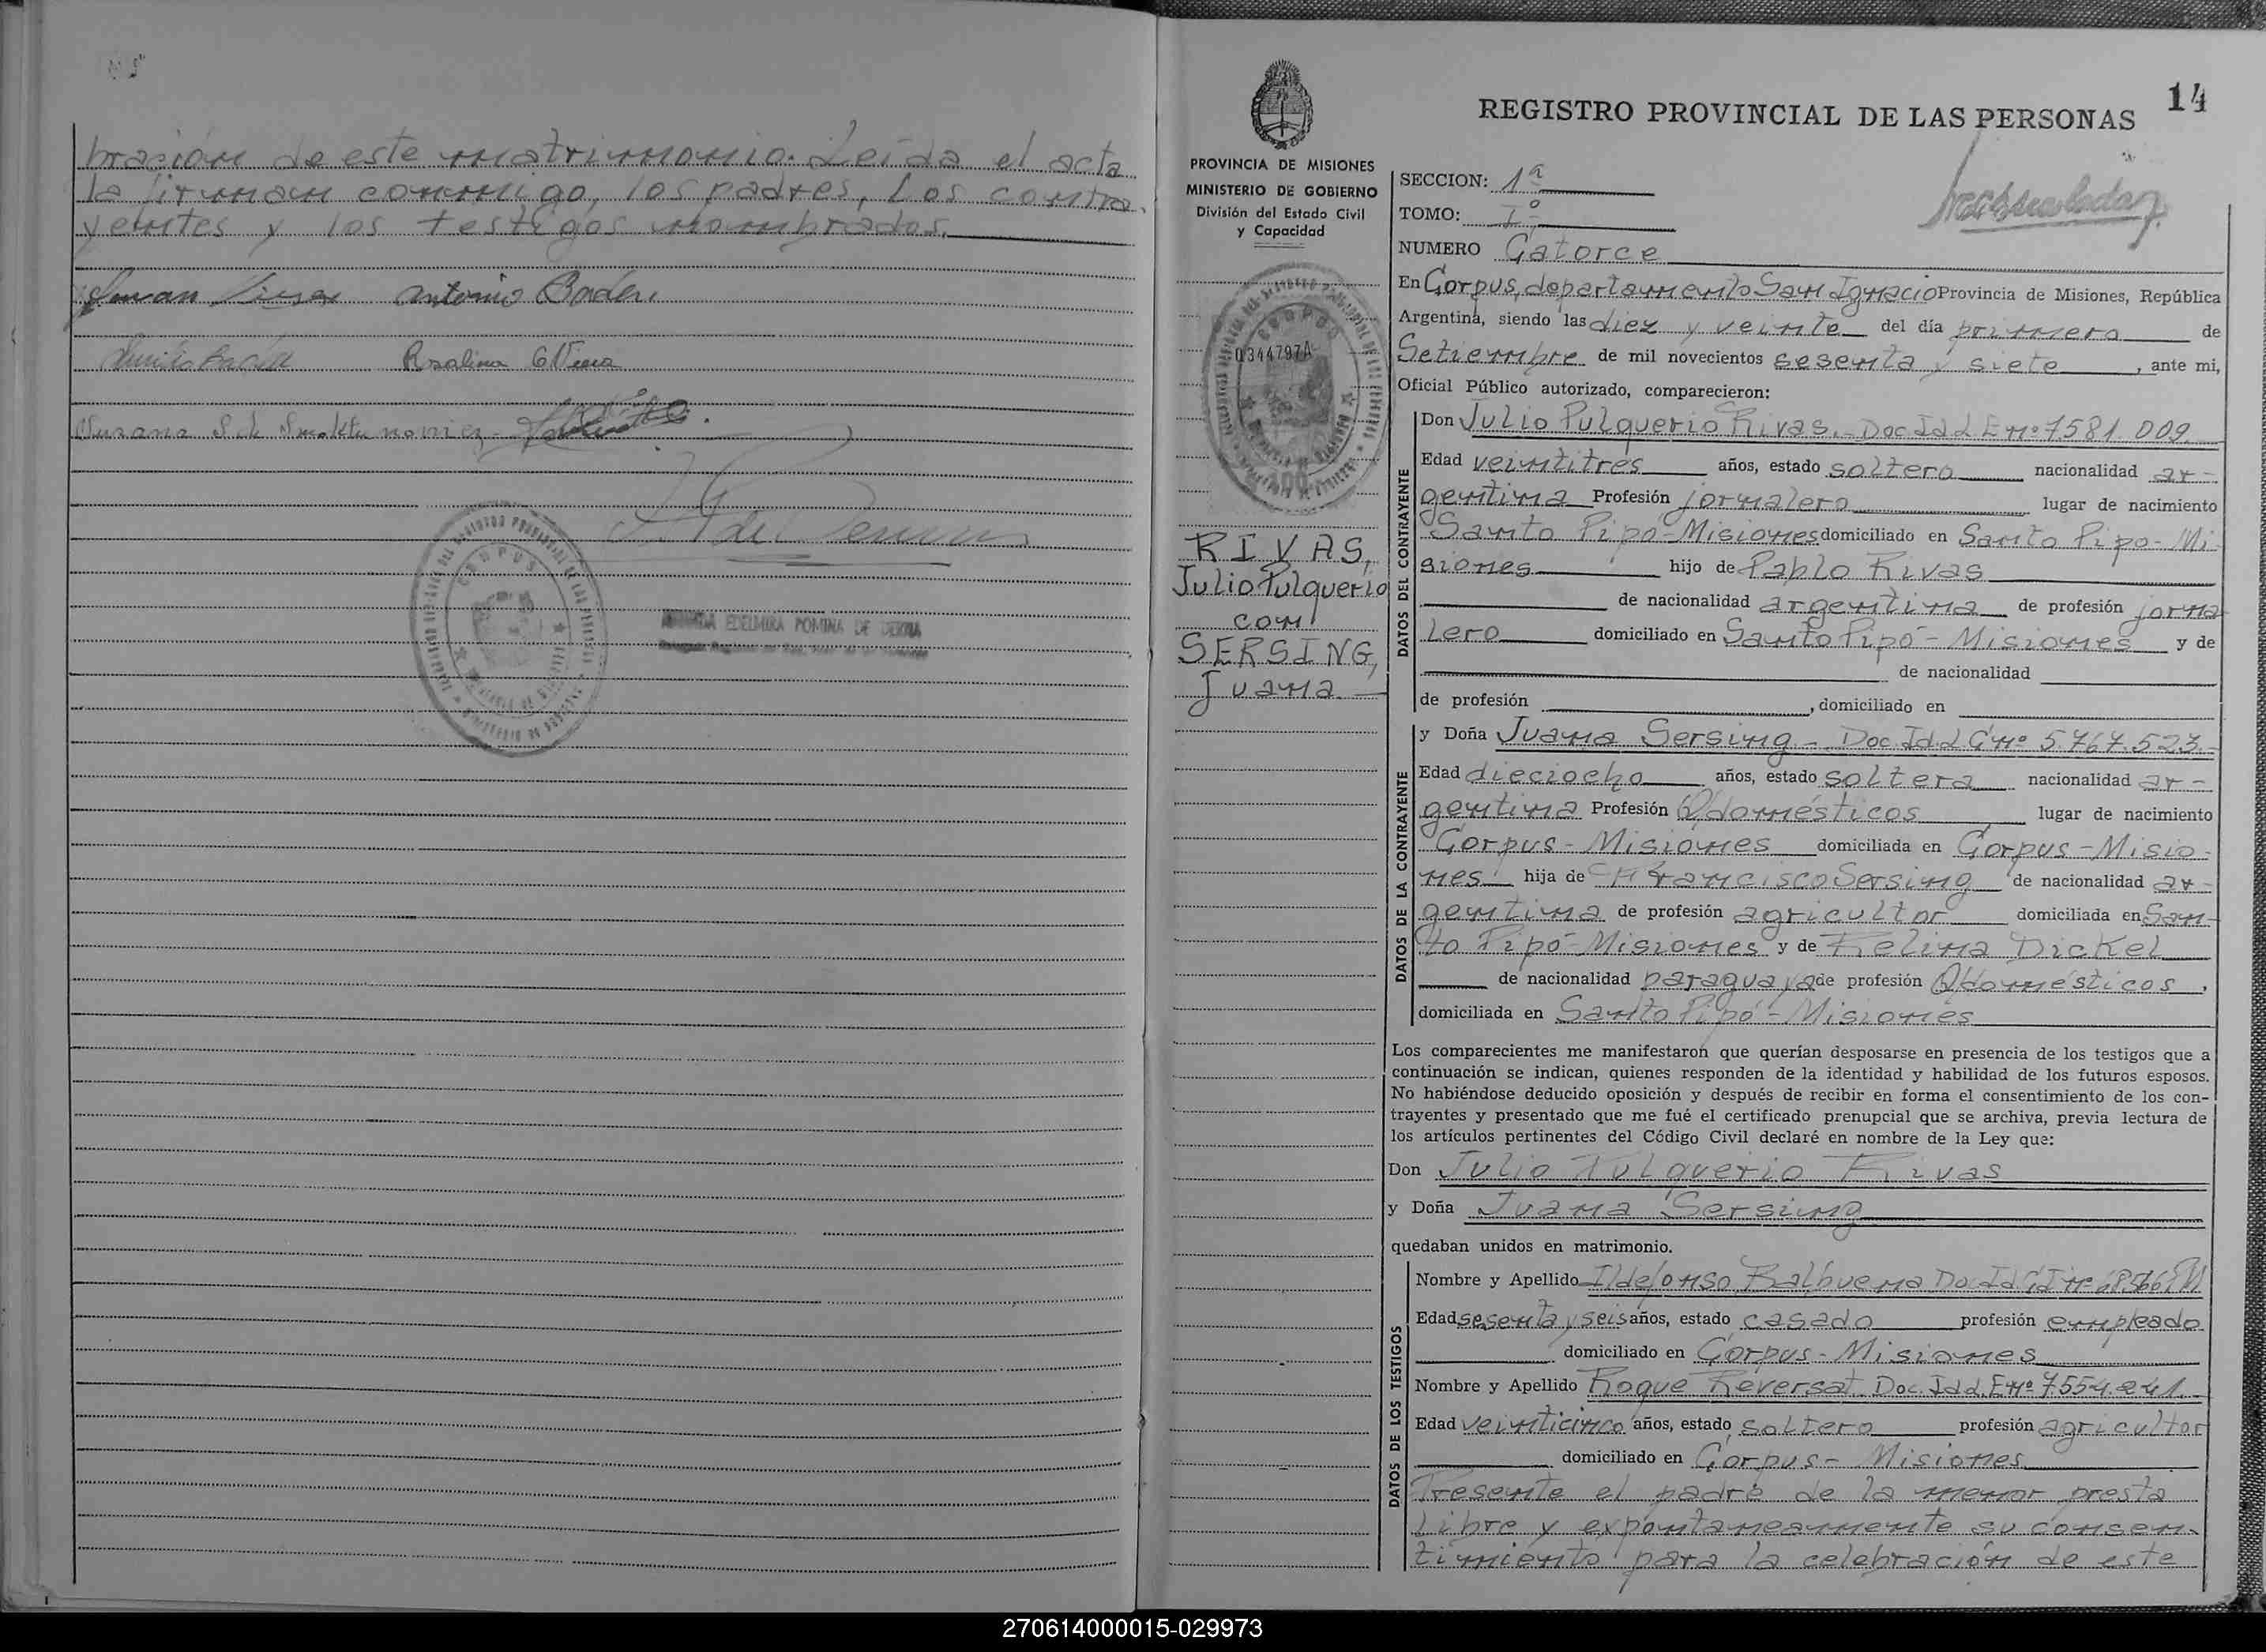 bración de este matrimonio. Leída el acta
la firman conmigo, los padres, los contra-
yentes y los testigos nombrados.
Antonio
Rosalina G Viera
Susana S. de
CORPUS
EDELMIRA POMINA DE
14
REGISTRO PROVINCIAL DE LAS PERSONAS
PROVINCIA DE MISIONES
MINISTERIO DE GOBIERNO
División del Estado Civil
y Capacidad
CORPUS
0344797A
RIVAS,
Julio Pulquerio
con
SERSING,
Juana
SECCION: 1ª
TOMO: Iº
NUMERO Catorce
En Corpus, departamento San Ignacio Provincia de Misiones, República
Argentina, siendo las diez y veinte del día primero de
Setiembre de mil novecientos sesenta y siete, ante mi,
Oficial Público autorizado, comparecieron:
DATOS DEL CONTRAYENTE
Don Julio Pulquerio Rivas.- Doc. Id L E nº 7581.009
Edad veintitres años, estado soltero nacionalidad ar-
gentina Profesión jornalero lugar de nacimiento
Santo Pipó-Misiones domiciliado en Santo Pipo-Mi
siones hijo de Pablo Rivas
de nacionalidad argentina de profesión jorna
lero domiciliado en Santo Pipó-Misiones y de
de nacionalidad
de profesión , domiciliado en
DATOS DE LA CONTRAYENTE
y Doña Juana Sersing - Doc. Id L C nº 5.767.523.-
Edad dieciocho años, estado soltera nacionalidad ar-
gentina Profesión Q/domésticos lugar de nacimiento
Corpus-Misiones domiciliada en Corpus-Misio-
nes hija de Francisco Sersing de nacionalidad ar-
gentina de profesión agricultor domiciliada en San-
to Pipó-Misiones y de Relina Dickel
de nacionalidad paraguaya de profesión Q/domésticos,
domiciliada en Santo Pipó-Misiones
Los comparecientes me manifestaron que querían desposarse en presencia de los testigos que a
continuación se indican, quienes responden de la identidad y habilidad de los futuros esposos.
No habiéndose deducido oposición y después de recibir en forma el consentimiento de los con-
trayentes y presentado que me fué el certificado prenupcial que se archiva, previa lectura de
los artículos pertinentes del Código Civil declaré en nombre de la Ley que:
Don Julio Pulquerio Rivas
y Doña Juana Sersing
quedaban unidos en matrimonio.
DATOS DE LOS TESTIGOS
Nombre y Apellido Ildefonso Balbuena Doc Id C I nº
Edad sesenta y seis años, estado casado profesión empleado
domiciliado en Corpus-Misiones
Nombre y Apellido Roque Reversat Doc. Id L.E nº 7554.241.-
Edad veinticinco años, estado soltero profesión agricultor
domiciliado en Corpus- Misiones
Presente el padre de la menor presta
libre y expontaneamente su consen-
timiento para la celebración de este
270614000015-029973